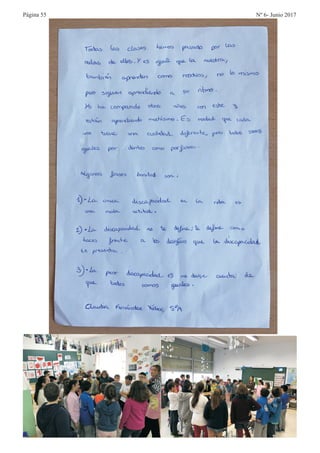 Página 55
Nº 6- Junio 2017
Todas las clases hemos pasado por las
aulas de ellos. Y es igual que la nuestra,
también aprenden como nosotros, no lo mismo
pero siguen aprendiendo a su ritmo.
Yo he comparado otros años con este y
están aprendiendo muchísimo. Es verdad que cada
uno tiene una cualidad diferente, pero todos somos
iguales por dentro como por fuera.
Algunas frases bonitas son.
1)- La única discapacidad en la vida es
una mala actitud.
2)- La discapacidad no te define; te define como
haces frente a los desafíos que la discapacidad
te presenta.
3)- La peor discapacidad es no darse cuenta de
que todos somos iguales.
Claudia Fernández Yáñez 5ºA